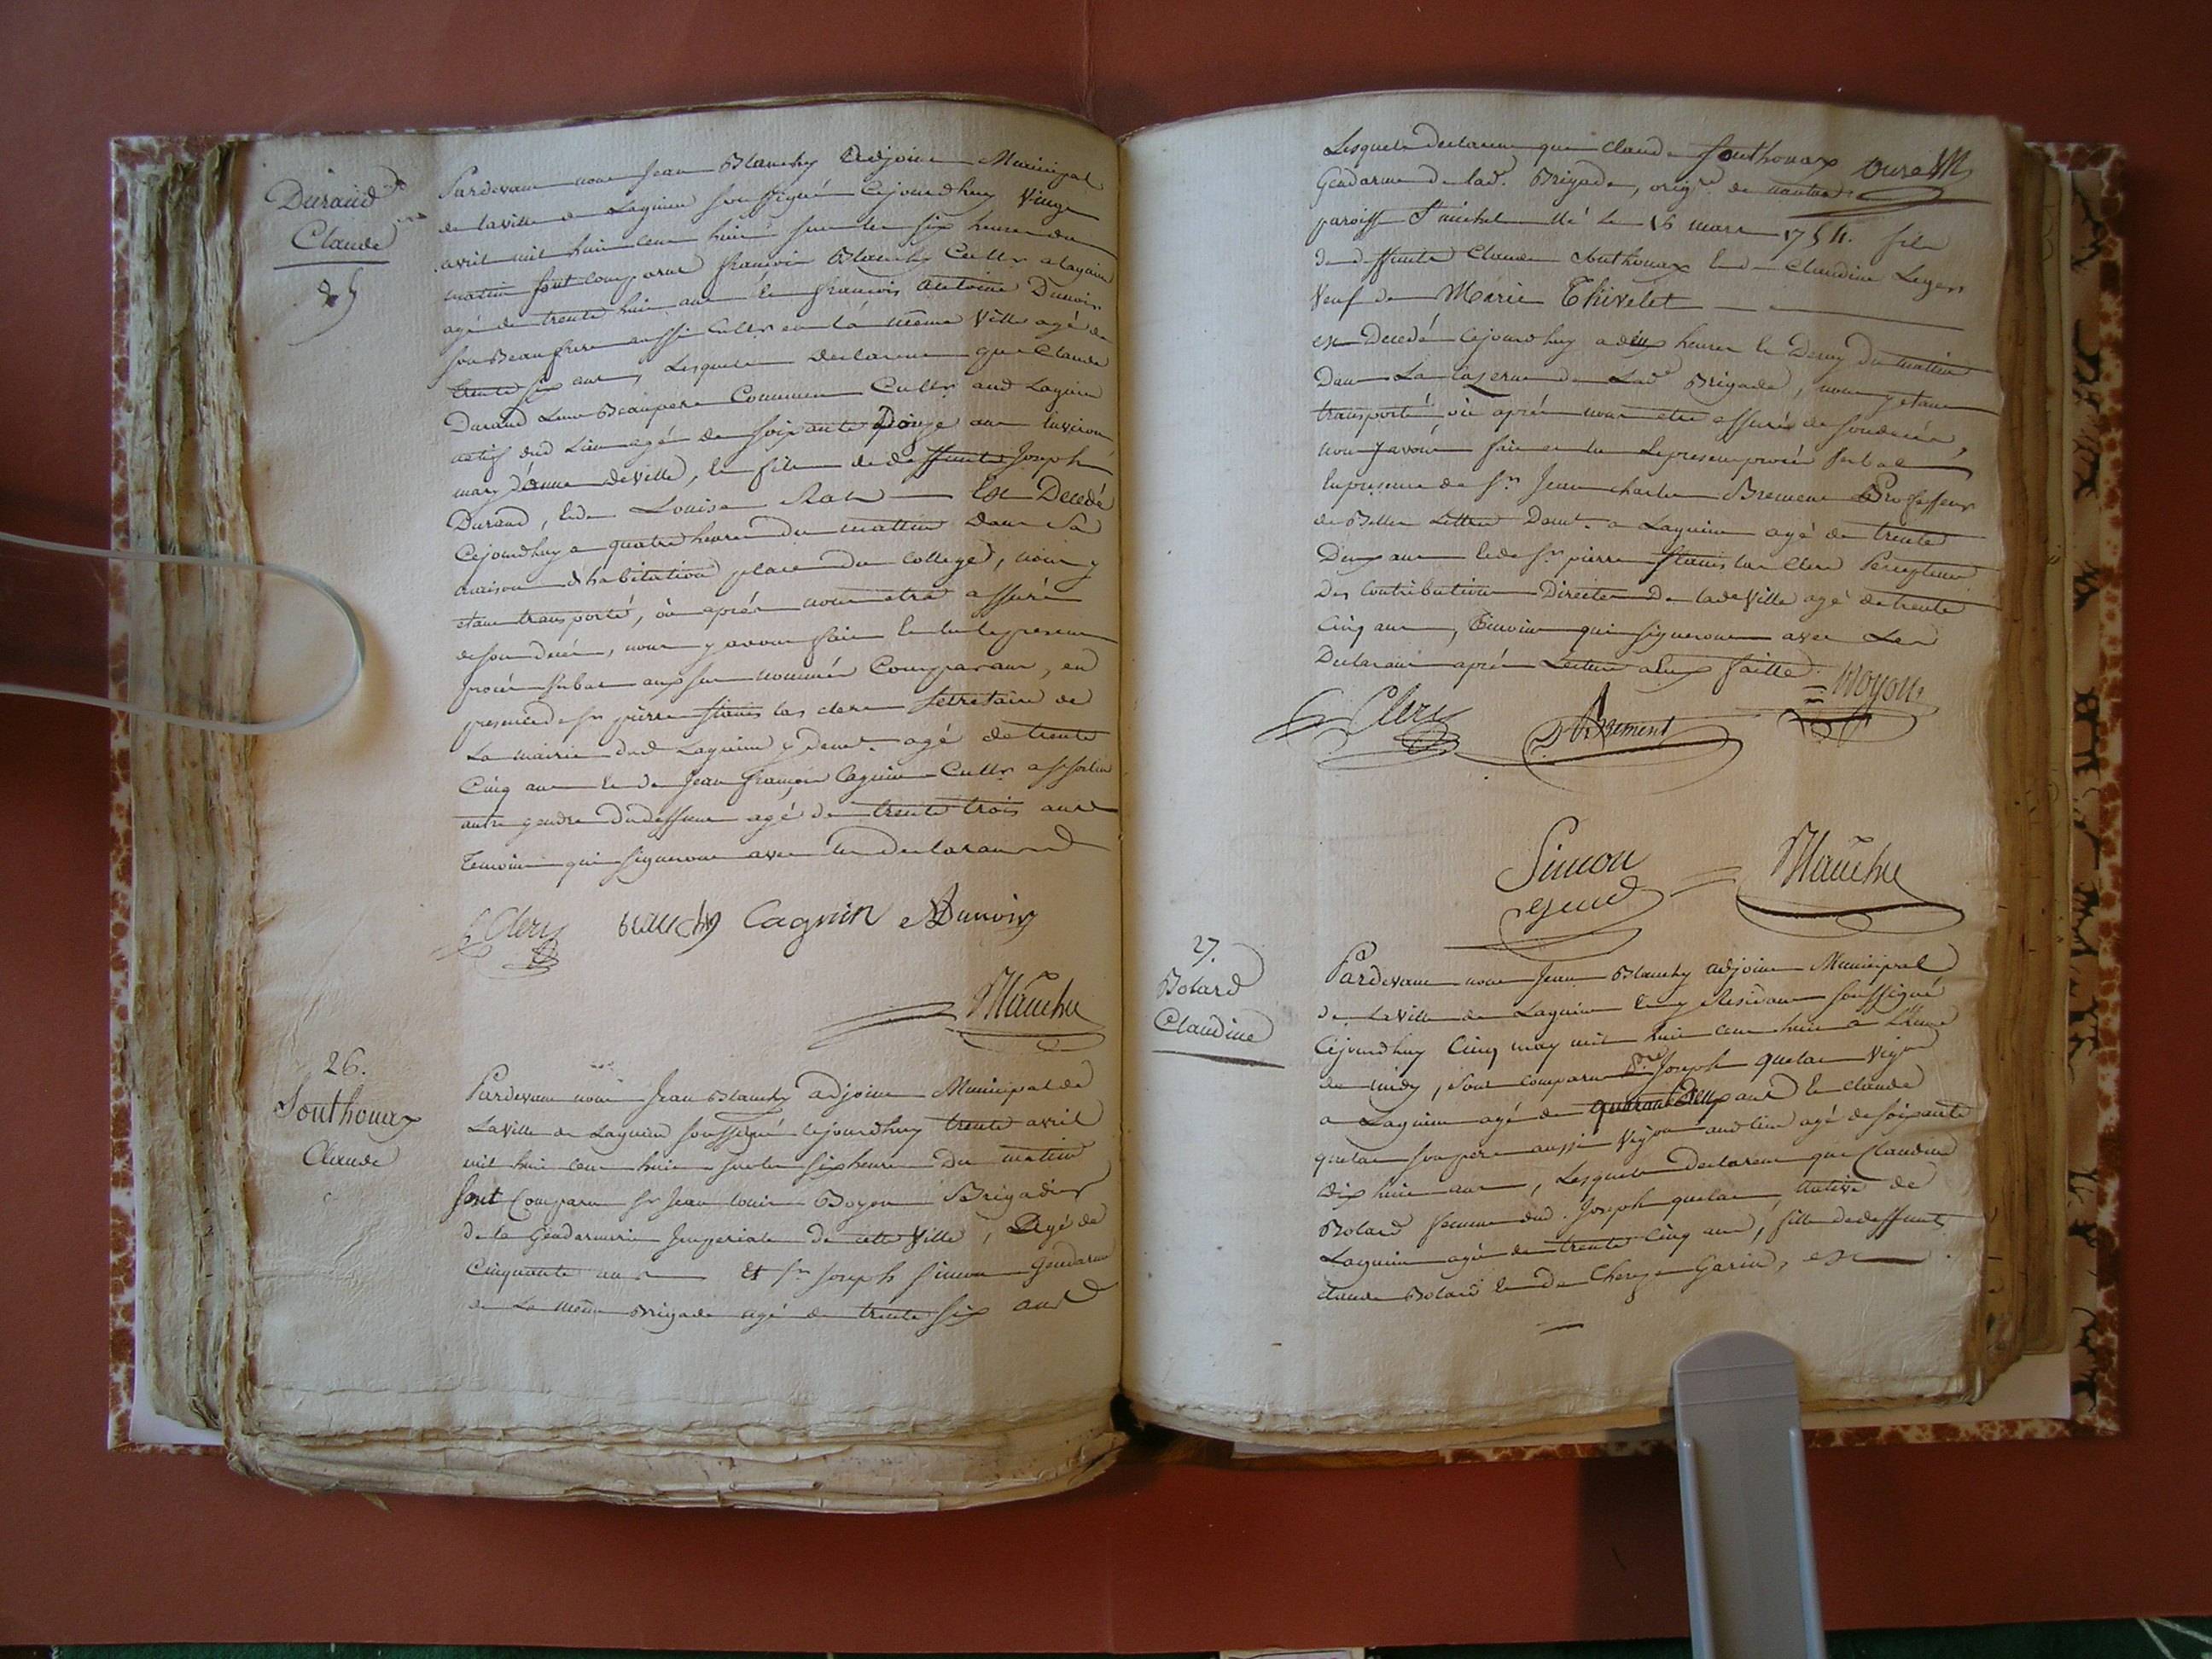 Durand
Claude
25
Pardevant nous Jean Blanchy Adjoint Municipal
de la ville de Lagnieu soussigné Cejourdhuy Vingt
avril mil huit cent huit sur les six heures du
matin sont comparus françois Blanchy Cultr a lagnieu
agé de trente huit ans et françois antoine Dunoir
son Beaufrere aussi Cultr en la même Ville agé de
trente six ans, Lesquels declarent que Claude
Durand Leur Beaupere Commun Cultr aud Lagnieu
natif dud Lieu agé de soixante Douze ans Environ
mary Jéanne deville, et fils de deffunts Joseph
Durand, et de Louise Rat Est Decedé
Cejourdhuy a quatre heures du mattin dans Sa
maison dhabitation place du College, nous y
etant transporté, où aprés nous etre assuré
de son decés, nous y avons fait et lu le present
procés verbal aux sus nommés Comparant, en
presence de sr pierre stanislas clerc Secretaire de
La mairie dud Lagnieu y demt agé de trente
Cinq ans et de Jean françois Cagnin Cultr
autre gendre dud deffunt agé de trente trois ans
temoins qui signeront avec les declarants
Clerc blanchy Cagnin Dunoir
Blanchy
26.
Southonax
Claude
Pardevant nous Jean Blanchy adjoint Municipal de
La Ville de Lagnieu soussigné cejourdhuy trente avril
mil huit cent huit sur les six heures Du matin
sont Comparu sr Jean louis Boyon Brigadier
de la Gendarmerie Imperiale de cette Ville, Agé de
Cinquante ans Et sr Joseph Simon Gendarme
de La même Brigade agé de trente six ans
Lesquels declarent que Claude Southonax
Gendarme de lad. Brigade, origre de nantua
paroisse St michel Né le 16 mars 1754. fils
de deffunts Claude Southonax et de Claudine Leger
Veuf de Marie Thivelet
est Decedé Cejourdhuy a deux heures et Demy du matin
Dans La Cazerne de Lade Brigade, nous y etant
transporté où aprés nous etre assuré de son decés,
nous y avons fait et lu Le present procés Verbal
En presence de sr Jean charles Brement Professeur
de Belles Lettres Demt a Lagnieu agé de trente
Deux ans et de sr pierre stanislas Clerc Percepteur
Des Contributions Directes De lade Ville agé de trente
Cinq ans, temoins qui signeront avec Les
Declarants aprés Lecture a Eux faitte.
Clerc Brement Boyon
Simon
gend
Blanchy
27.
Bolard
Claudine
Pardevant nous Jean Blanchy adjoint Municipal
de La Ville de Lagnieu et y Residant soussigné
Cejourdhuy Cinq may mil huit cent huit a L'heure
de midy, sont comparu Joseph quelat Vigon
a Lagnieu agé de quarante Deux ans et claude
quelat son pere aussi Vigon aud lieu agé de soixante
dix huit ans, Lesquels Declarent que Claudine
Bolard femme dud. Joseph quelat, native de
Lagnieu agée de trente Cinq ans, fille de deffunts
claude Bolard et de Therese Garin, est